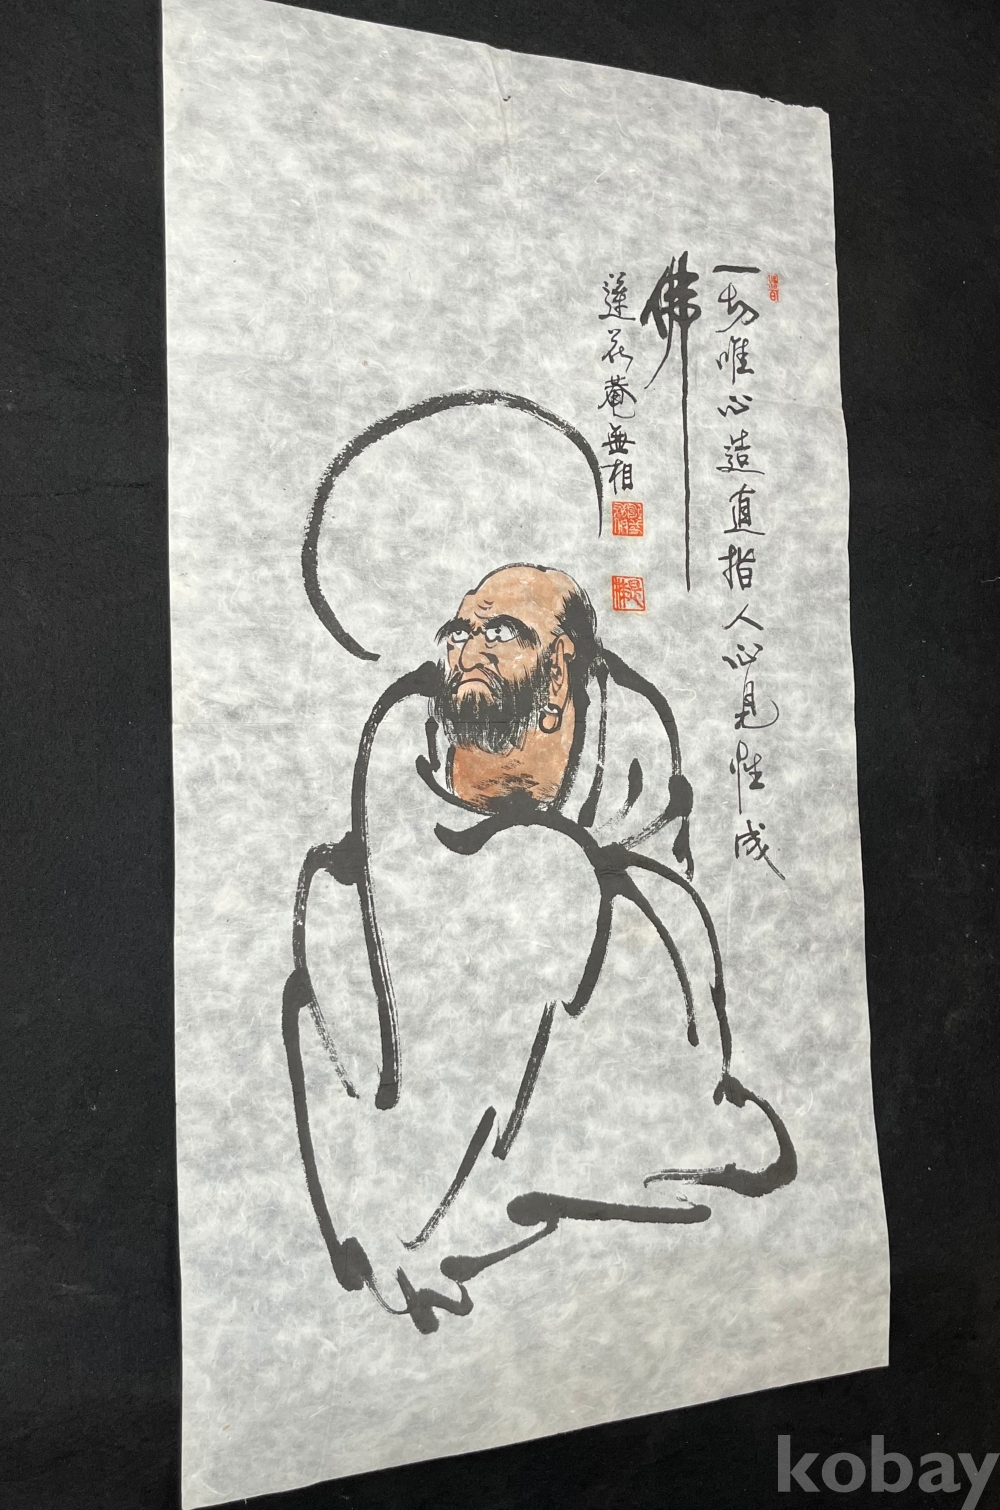 一切唯心造直指人心見性成
佛
蓮花菴無相
kobay